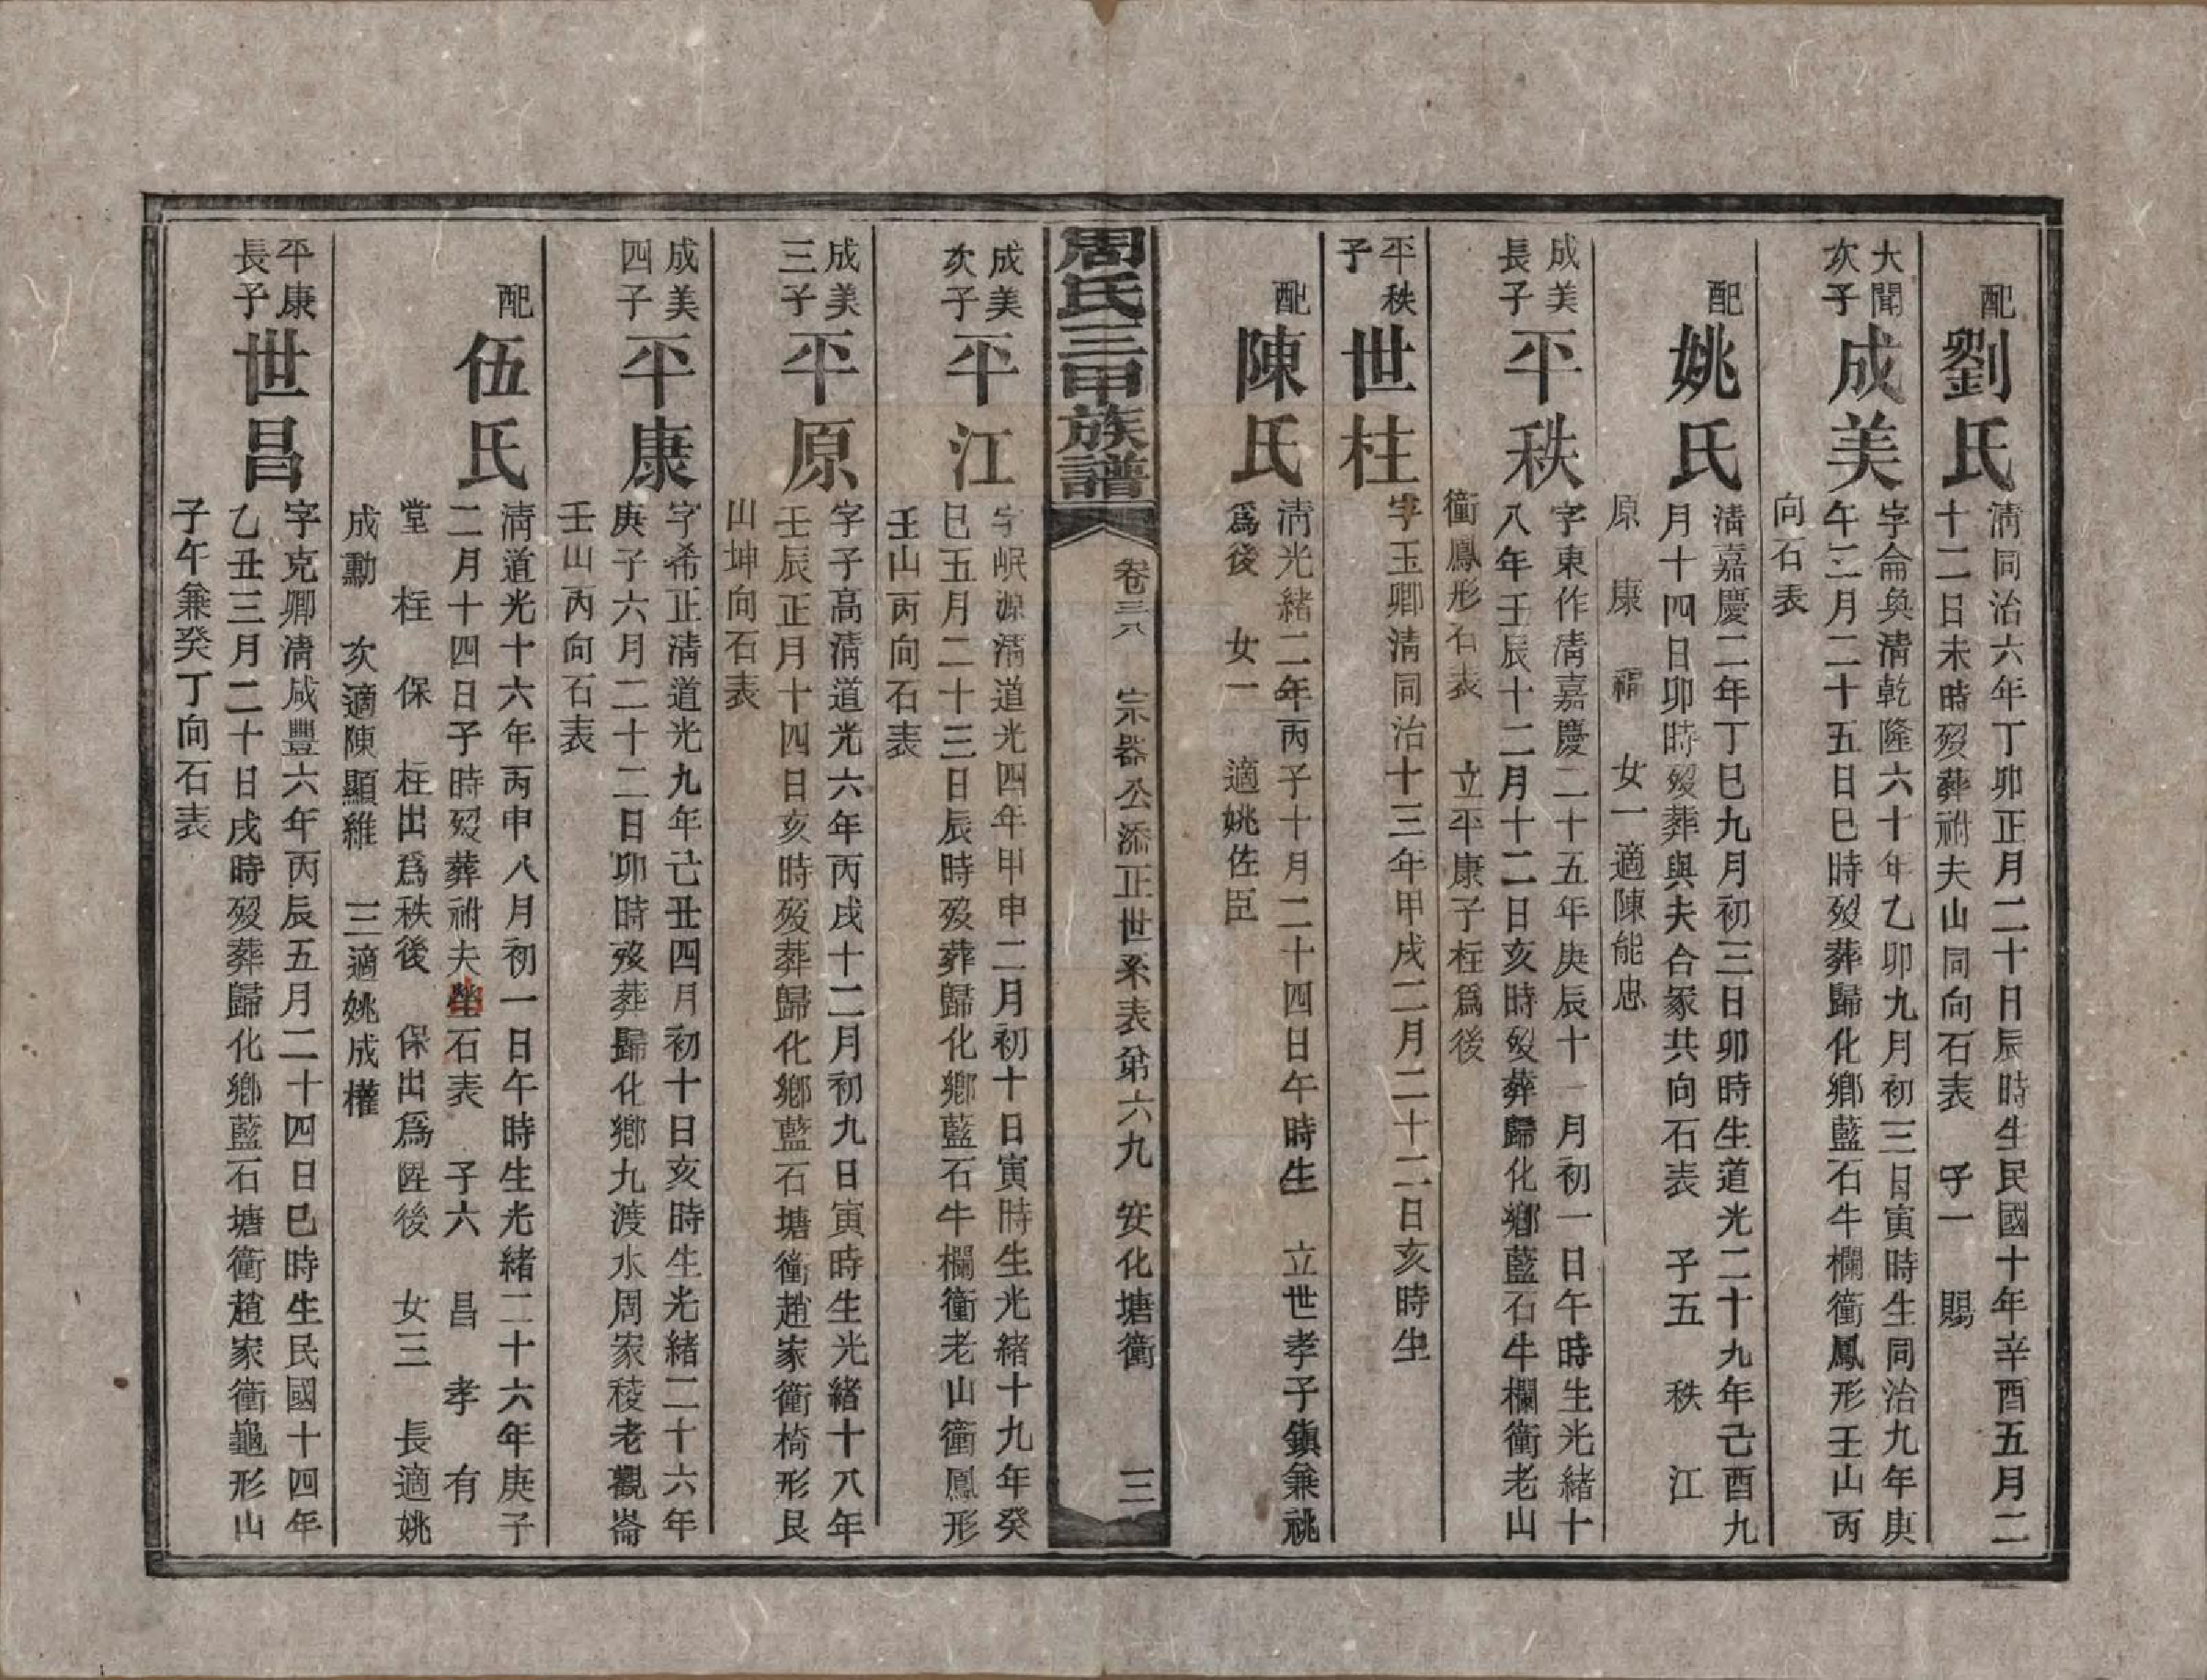 配
劉氏
清同治六年丁卯正月二十日辰時生民國十年辛酉五月二
十二日未時歿葬祔夫山同向石表 子一 賜
大聞
次子
成美
字侖奐清乾隆六十年乙卯九月初三日寅時生同治九年庚
午三月二十五日巳時歿葬歸化鄉藍石牛欄衝鳳形壬山丙
向石表
配
姚氏
清嘉慶二年丁巳九月初三日卯時生道光二十九年己酉九
月十四日卯時歿葬與夫合冢共向石表 子五 秩 江
原 康 福 女一適陳能忠
成美
長子
平秩
字東作清嘉慶二十五年庚辰十一月初一日午時生光緒十
八年壬辰十二月十二日亥時歿葬歸化鄉藍石牛欄衝老山
衝鳳形石表 立平康子枉爲後
平秩
子
世柱
字玉卿清同治十三年甲戌二月二十二日亥時生
配
陳氏
清光緒二年丙子十月二十四日午時生 立世孝子鎮兼祧
爲後 女一 適姚佐臣
周氏三甲族譜
卷三六 宗器公添正世系表弟六九 安化塘衝 三
成美
次子
平江
字岷源清道光四年甲申二月初十日寅時生光緒十九年癸
巳五月二十三日辰時歿葬歸化鄉藍石牛欄衝老山衝鳳形
壬山丙向石表
成美
三子
平原
字子高清道光六年丙戌十二月初九日寅時生光緒十八年
壬辰正月十四日亥時歿葬歸化鄉藍石塘衝趙家衝椅形艮
山坤向石表
成美
四子
平康
字希正清道光九年己丑四月初十日亥時生光緒二十六年
庚子六月二十二日卯時歿葬歸化鄉九渡水周家稜老觀崙
壬山丙向石表
配
伍氏
清道光十六年丙申八月初一日午時生光緒二十六年庚子
二月十四日子時歿葬祔夫塋石表 子六 昌 孝 有
堂 枉 保 枉出爲秩後 保出爲陞後 女三 長適姚
成勳 次適陳顯維 三適姚成權
平康
長子
世昌
字克卿清咸豐六年丙辰五月二十四日巳時生民國十四年
乙丑三月二十日戌時歿葬歸化鄉藍石塘衝趙家衝龜形山
子午兼癸丁向石表